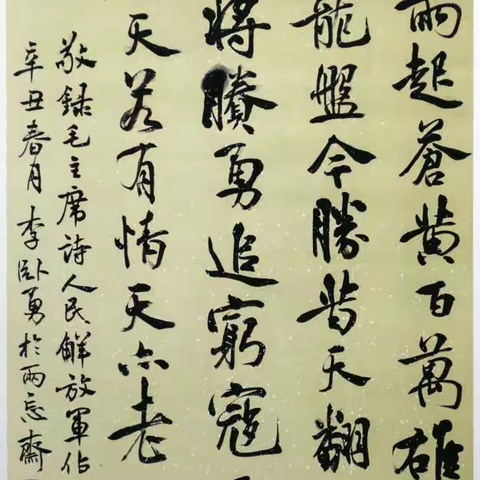 雨起蒼黄百萬雄
龍盤今勝昔天翻
將賸勇追窮寇
天若有情天亦老
敬録毛主席詩人民解放軍佔
辛丑春月李卧勇於兩忘齋